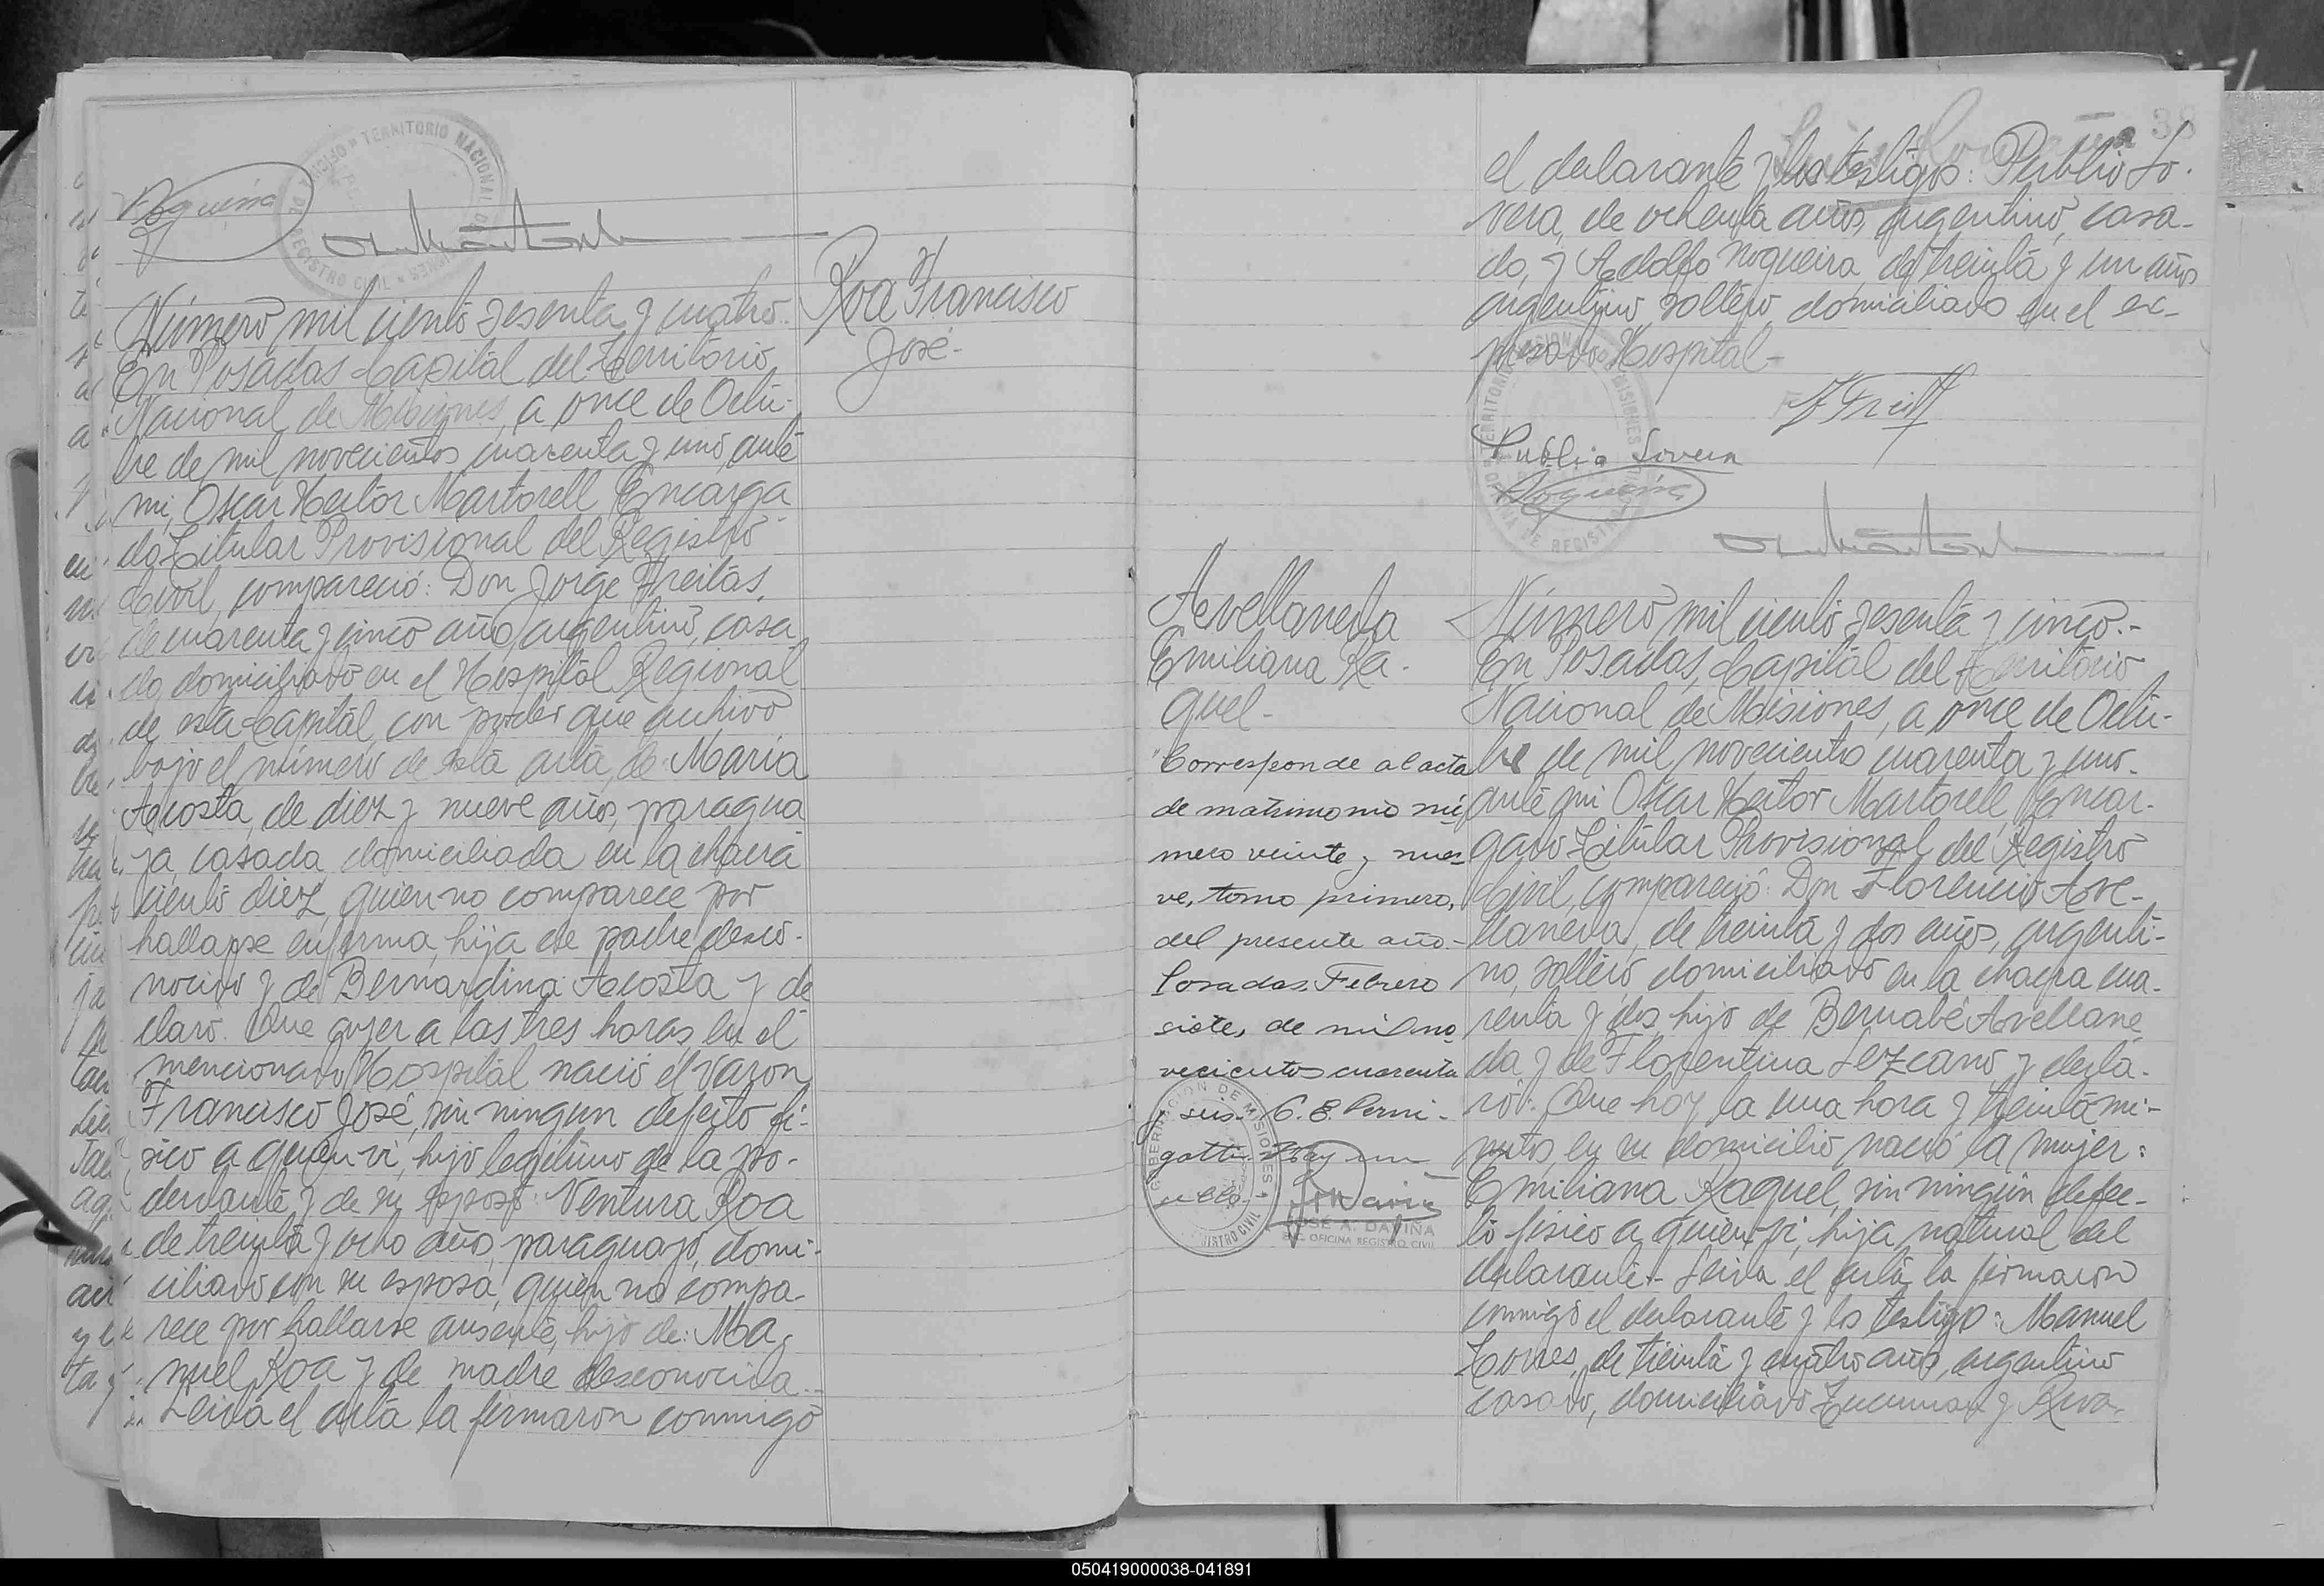 Nogueira
Número mil ciento sesenta y cuatro.
Roa Francisco
José-
En Posadas Capital del Territorio
Nacional de Misiones, a once de Octu-
bre de mil novecientos cuarenta y uno, ante
mi, Oscar Hector Martorell Encarga
do Titular Provisional del Registro
Civil, compareció: Don Jorge Freitas,
de cuarenta y cinco años, argentino, casa
do, domiciliado en el Hospital Regional
de esta Capital, con poder que archivo
bajo el número de esta acta, de María
Acosta, de diez y nueve años, paragua
ya, casada, domiciliada en la chacra
ciento diez, quien no comparece por
hallarse enferma, hija de padre desco-
nocido y de Bernardina Acosta y de
claró: Que ayer a las tres horas, en el
mencionado Hospital nació el varon
Francisco José, sin ningun defecto fi-
sico a quien vi, hijo legítimo de la po-
derdante y de su esposo: Ventura Roa
de treinta y ocho años, paraguayo, domi-
ciliado con su esposa, quien no compa-
rece por hallarse ausente, hijo de: Ma-
nuel Roa y de madre desconocida.-
Leida el acta la firmaron conmigo
38
el declarante y los testigos: Publio Lo-
vera, de ochenta años, argentino, casa-
do, y Adolfo Nogueira, de treinta y un años
argentino, soltero domiciliado en el ex-
presado Hospital-
Publio Lovera
Nogueira
Avellaneda
Emiliana Ra-
quel-
"Corresponde al acta
de matrimonio nú
mero veinte y nue-
ve, tomo primero,
del presente año-
Posadas, Febrero
siete, de mil no
vecientos cuarenta
y seis- C. E. Perni-
gotti- Hay un
sello-
JOSÉ A. DAVIÑA
ENC. OFICINA REGISTRO CIVIL
Número mil ciento sesenta y cinco.-
En Posadas, Capital del Territorio
Nacional de Misiones, a once de Octu-
bre de mil novecientos cuarenta y uno.
ante mi Oscar Hector Martorell, Encar-
gado Titular Provisional del Registro
Civil, compareció: Don Florencio Ave-
llaneda, de treinta y dos años, argenti-
no, soltero domiciliado en la chacra cua-
renta y dos, hijo de Bernabé Avellane
da y de Florentina Lezcano, y decla-
ró: Que hoy la una hora y treinta mi-
nutos, en su domicilio nació la mujer:
Emiliana Raquel, sin ningún defec-
to físico a quien vi, hija natural del
declarante.- Leida el acta la firmaron
conmigo el declarante y los testigos: Manuel
Torres, de treinta y cuatro años, argentino
casado, domiciliado Tucuman y Riva-
050419000038-041891